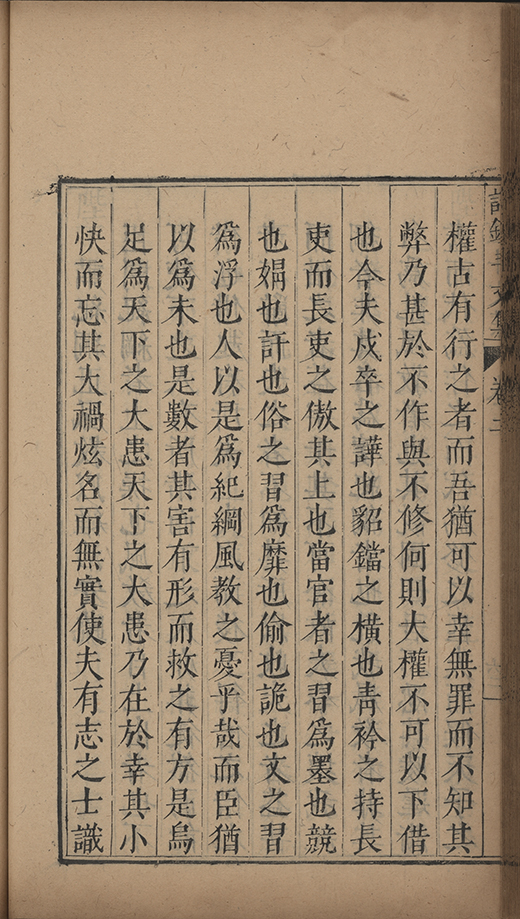 許鍾斗文集 卷
權古有行之者而吾猶可以幸無罪而不知其
弊乃甚於不作與不修何則大權不可以下借
也今夫戍卒之譁也貂鐺之橫也靑衿之持長
吏而長吏之傲其上也當官者之習爲墨也競
也媢也訐也俗之習爲靡也偷也詭也文之習
爲浮也人以是爲紀綱風教之憂乎哉而臣猶
以爲未也是數者其害有形而救之有方是烏
足爲天下之大患天下之大患乃在於幸其小
快而忘其大禍炫名而無實使夫有志之士識